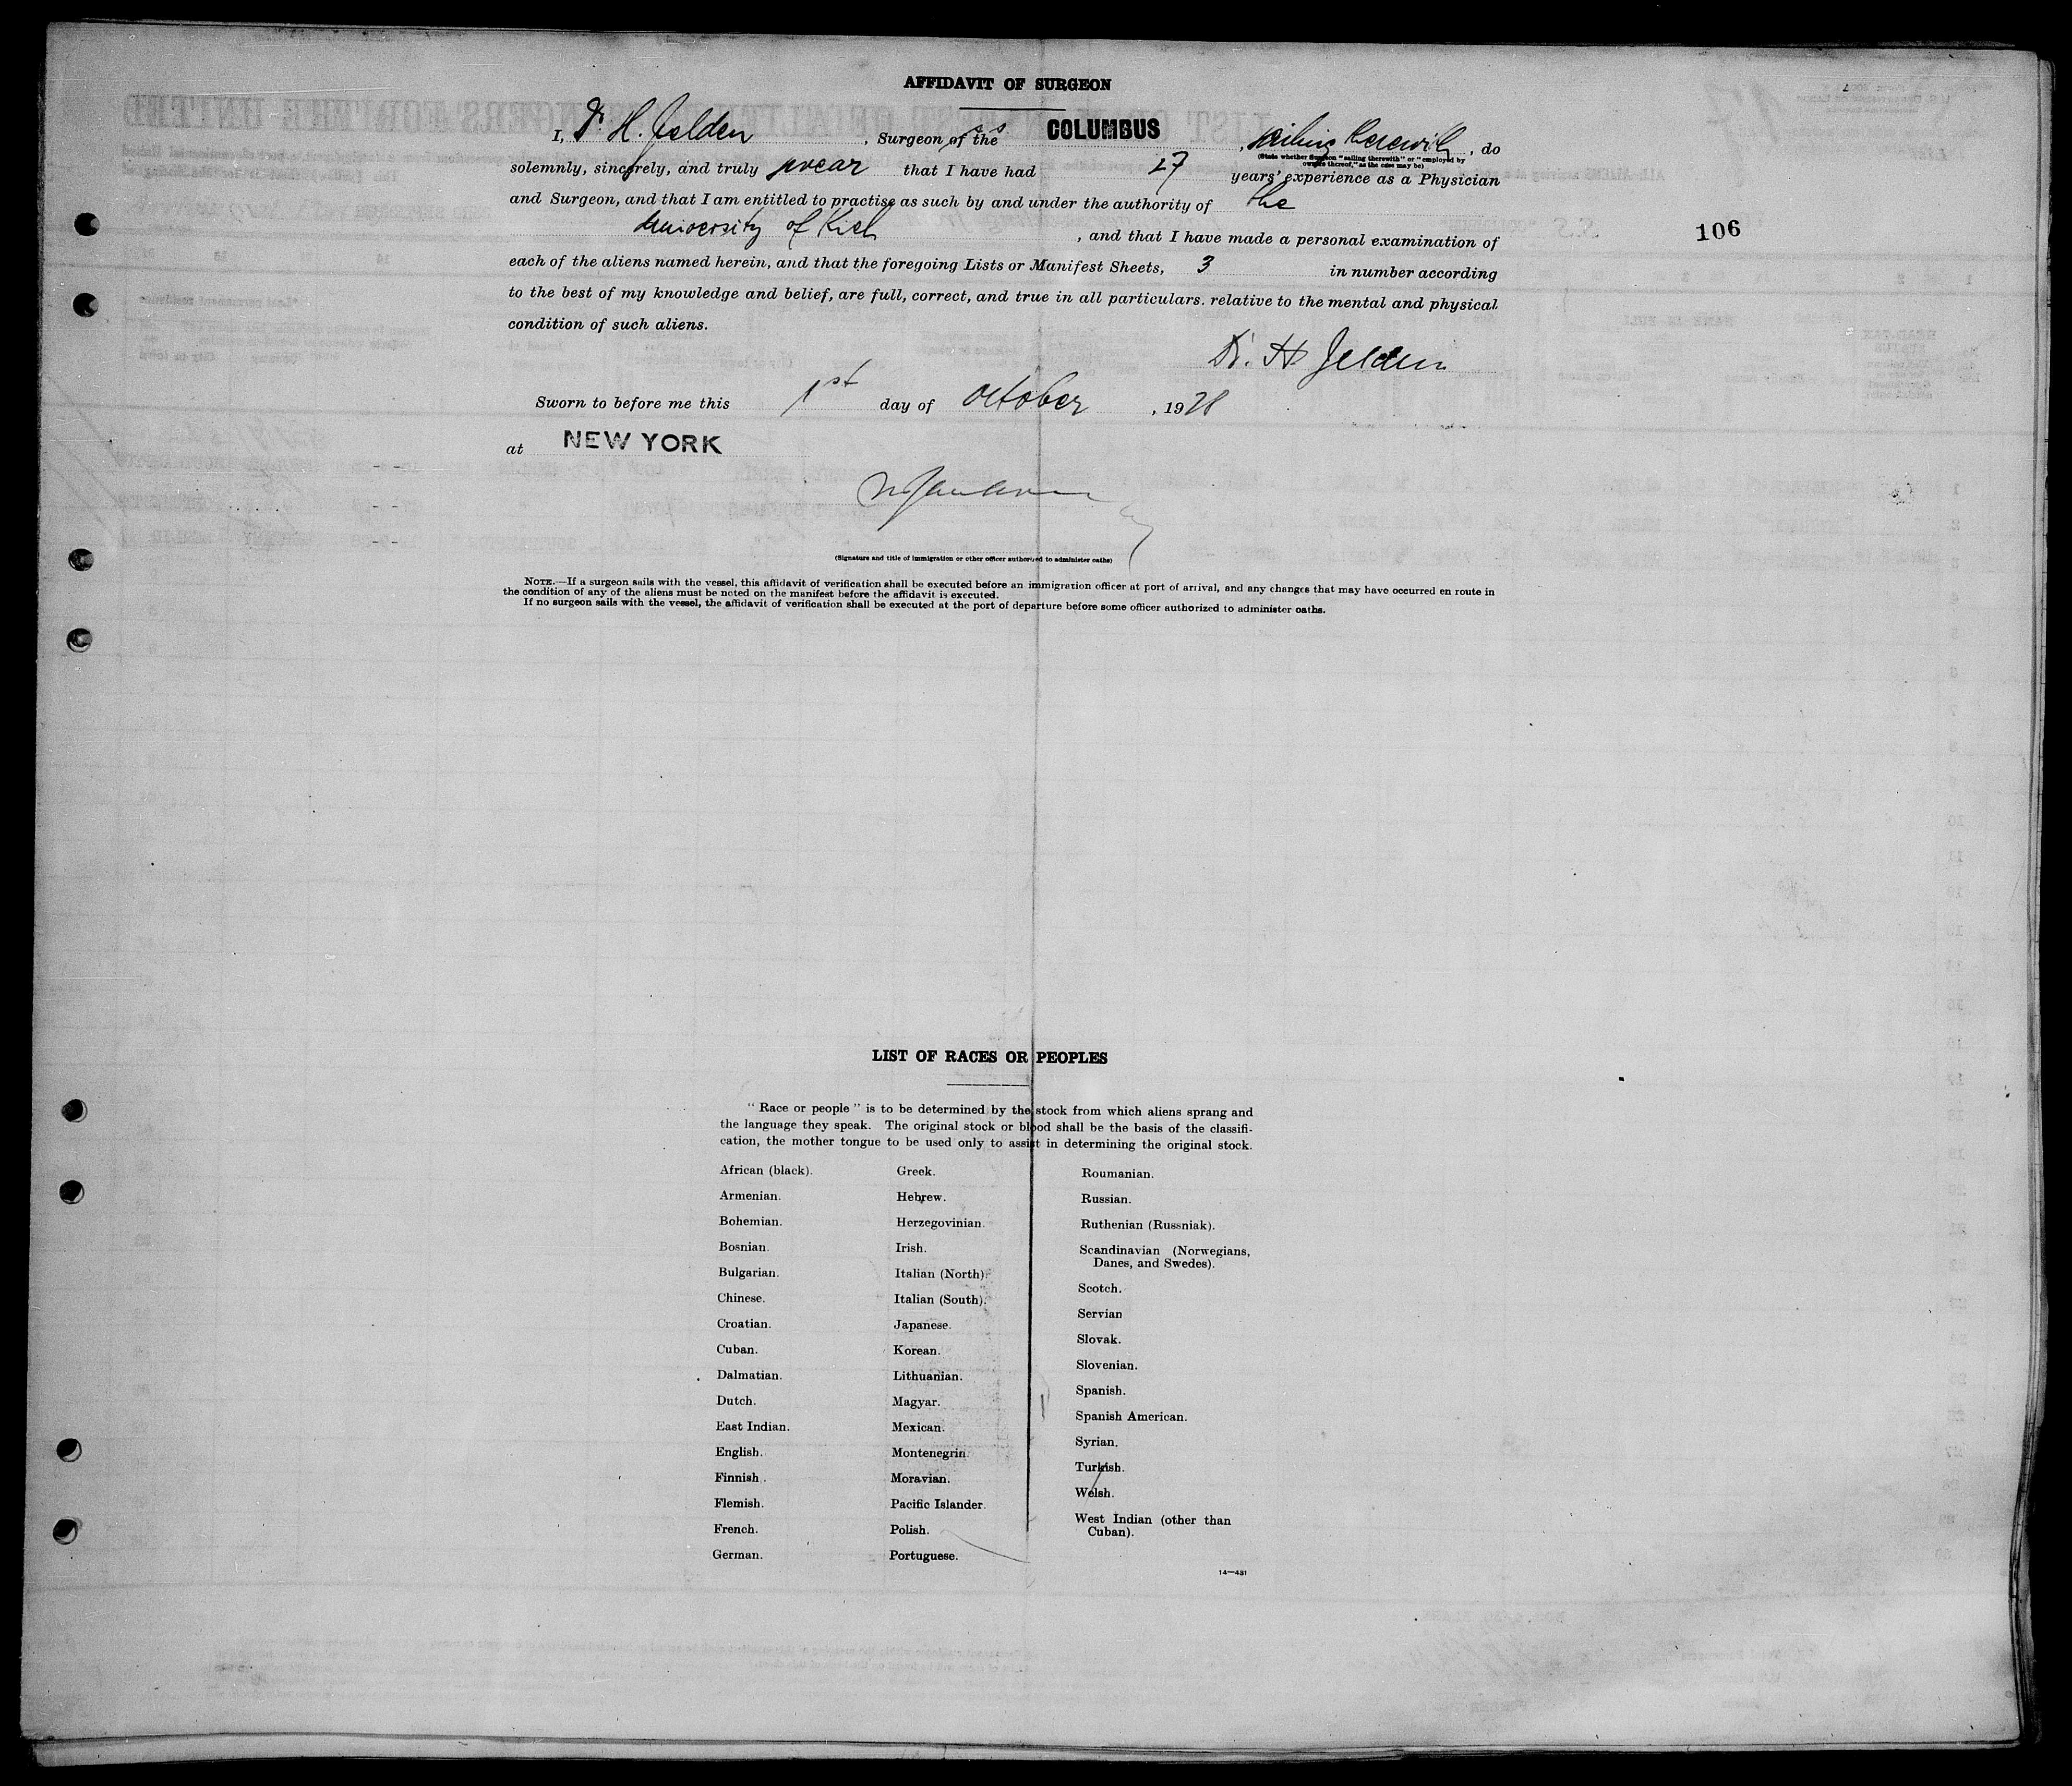 AFFIDAVIT OF SURGEON
I, Dr H. Jelden, Surgeon of the S S COLUMBUS, sailing therewith, do
(State whether Surgeon "sailing therewith" or "employed by
owners thereof," as the case may be)
solemnly, sincerely, and truly swear that I have had 27 years' experience as a Physician
and Surgeon, and that I am entitled to practise as such by and under the authority of the
University of Kiel, and that I have made a personal examination of
106
each of the aliens named herein, and that the foregoing Lists or Manifest Sheets, 3 in number according
to the best of my knowledge and belief, are full, correct, and true in all particulars. relative to the mental and physical
condition of such aliens.
Dr. H Jelden
Sworn to before me this 1st day of October, 1928
at NEW YORK
(Signature and title of immigration or other officer authorized to administer oaths)
NOTE.—If a surgeon sails with the vessel, this affidavit of verification shall be executed before an immigration officer at port of arrival, and any changes that may have occurred en route in
the condition of any of the aliens must be noted on the manifest before the affidavit is executed.
If no surgeon sails with the vessel, the affidavit of verification shall be executed at the port of departure before some officer authorized to administer oaths.
LIST OF RACES OR PEOPLES
"Race or people" is to be determined by the stock from which aliens sprang and
the language they speak. The original stock or blood shall be the basis of the classifi-
cation, the mother tongue to be used only to assist in determining the original stock.
African (black).
Armenian.
Bohemian.
Bosnian.
Bulgarian.
Chinese.
Croatian.
Cuban.
Dalmatian.
Dutch.
East Indian.
English.
Finnish.
Flemish.
French.
German.
Greek.
Hebrew.
Herzegovinian.
Irish.
Italian (North).
Italian (South).
Japanese.
Korean.
Lithuanian.
Magyar.
Mexican.
Montenegrin.
Moravian.
Pacific Islander.
Polish.
Portuguese.
Roumanian.
Russian.
Ruthenian (Russniak).
Scandinavian (Norwegians,
Danes, and Swedes).
Scotch.
Servian
Slovak.
Slovenian.
Spanish.
Spanish American.
Syrian.
Turkish.
Welsh.
West Indian (other than
Cuban).
14—431